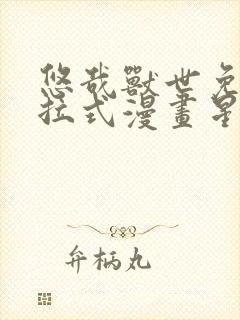 悠哉獸世免
拉式漫畫星
弁柄丸